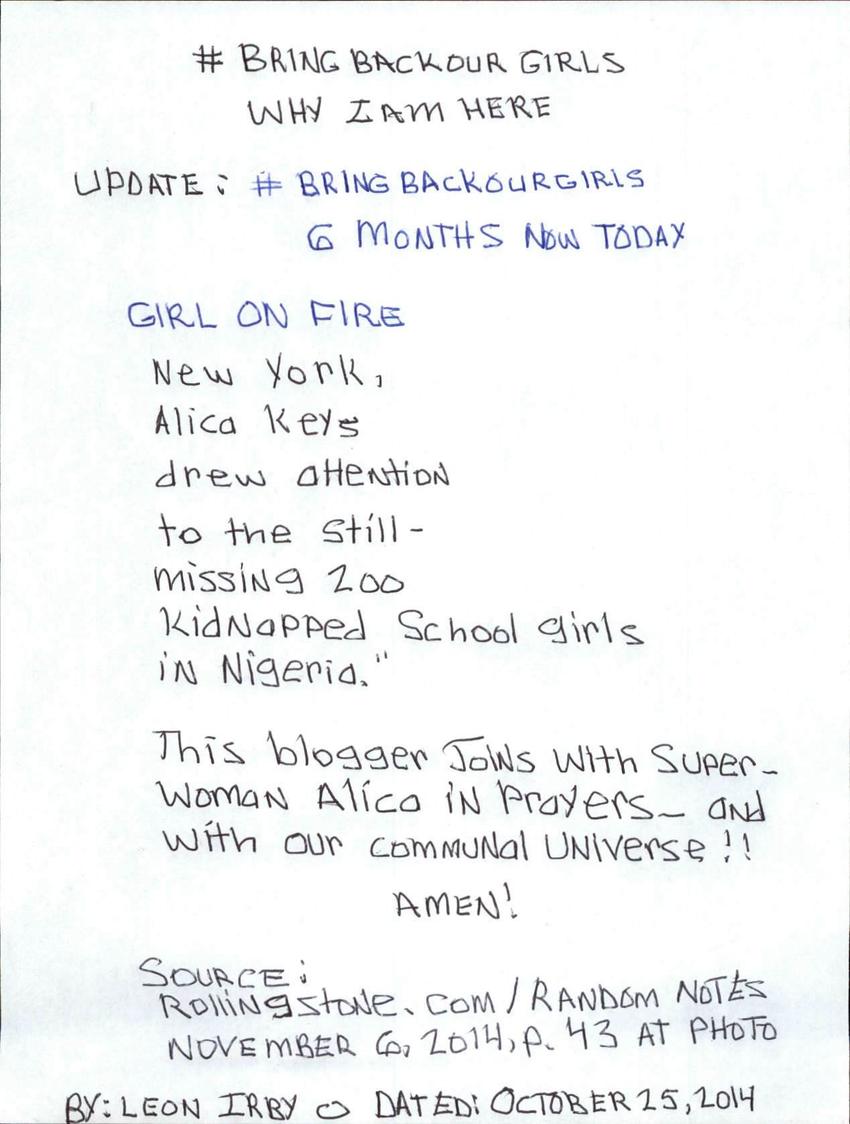 # BRING BACKOUR GIRLS
WHY I AM HERE
UPDATE: # BRING BACKOURGIRLS
6 MONTHS NOW TODAY
GIRL ON FIRE
New York,
Alica Keys
drew attention
to the still-
missing 200
kidnapped School girls
in Nigeria."
This blogger Joins with Super-
Woman Alica in Prayers- and
with our communal UNiverse!!
AMEN!
SOURCE:
Rollingstone.com/RANDOM NOTES
NOVEMBER 6, 2014, p. 43 AT PHOTO
BY: LEON IRBY DATED: OCTOBER 25, 2014